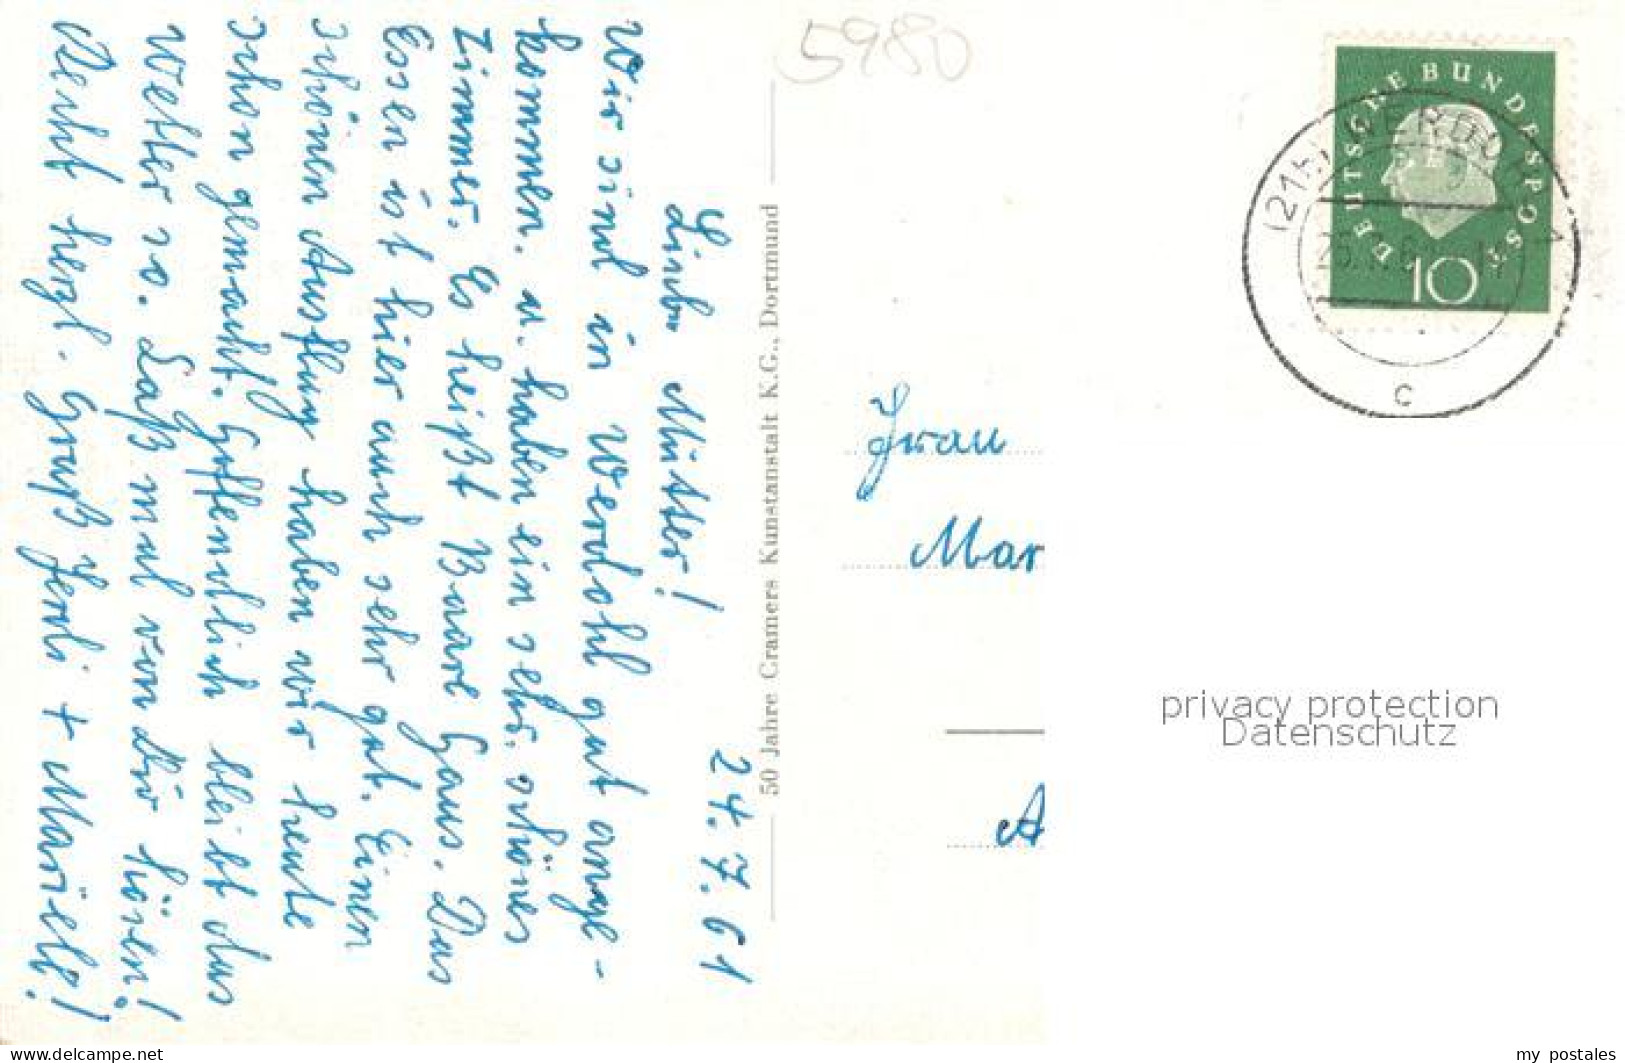 24.7.61
Liebe Mutter!
Wir sind in Werdohl gut ange-
kommen. u. haben ein sehr schönes
Zimmer. Es heißt Haus. Das
Essen ist hier auch sehr gut. Einen
schönen Ausflug haben wir heute
schon gemacht. Hoffendlich bleibt das
Wetter so. Laß mal von Dir hören!
Recht herzl. Gruß +
50 Jahre Cramers Kunstanstalt K.G., Dortmund
5980
DEUTSCHE BUNDESPOST
10
(21b) WERDOHL 1
c
Frau
Mar
A
privacy protection
Datenschutz
www.delcampe.net
my_postales